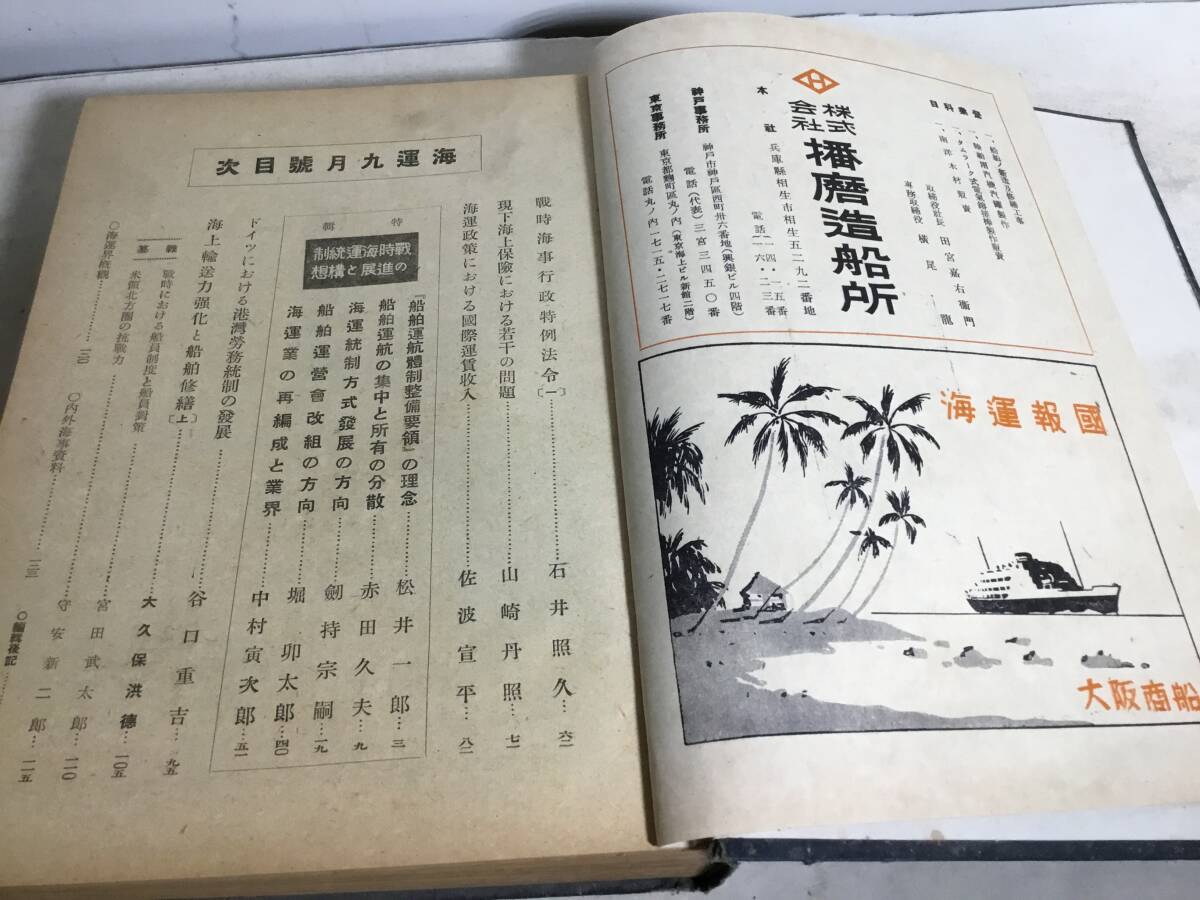 株式会社 播磨造船所
營業科目
一、船舶ノ製造及修繕工事
一、南洋木材販賣
取締役社長 田宮嘉右衞門
專務取締役 横尾龍
本社 兵庫縣相生市相生五二九二番地
神戸事務所 神戸市神戸區西町卅六番地(興銀ビル四階)
電話(代表)三宮三四五〇番
東京事務所 東京都麹町區丸ノ内(東京海上ビル新館二階)
電話丸ノ内一七一五・二七一七番
海運報國
大阪商船
海運九月號目次
戰時海事行政特例法令〔一〕……石井照久…六二
現下海上保險における若干の問題……山崎丹照…七一
海運政策における國際運賃收入……佐波宣平…八二
特輯
戰時海運統制の進展と構想
『船舶運航體制整備要領』の理念……松井一郎…三
船舶運航の集中と所有の分散……赤田久夫…九
海運統制方式發展の方向……劒持宗嗣…一九
船舶運營會改組の方向……堀卯太郎…四〇
海運業の再編成と業界……中村寅次郎…五一
ドイツにおける港灣勞務統制の發展……谷口重吉…九五
海上輸送力強化と船舶修繕〔上〕……大久保洪德…一〇五
戰時における船員制度と船員對策……宮田武太郎…一一〇
米領北方圏の抗戰力……守安新二郎…一一五
〇海運界概觀
〇内外海事資料
〇編輯後記